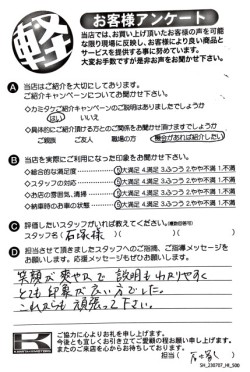 軽
お客様アンケート
当店では、お買い上げ頂いたお客様の声を可能
な限り現場に反映し、お客様により良い商品と
サービスを提供する事に努めています。
大変お手数ですが是非お声をお聞かせ下さい。
A 当店はご紹介を大切にしてあります。
ご紹介キャンペーンについてお聞かせ下さい。
◇カミタケご紹介キャンペーンのご説明はありましたでしょうか
はい いいえ
◇具体的にご紹介頂ける方とのご関係をお聞かせ頂けますでしょうか
ご親族 ご友人 職場の方 機会があれば紹介したい
B 当店を実際にご利用になった印象をお聞かせ下さい。
◇総合的な満足度 5大満足 4.満足 3.ふつう 2.やや不満 1.不満
◇スタッフの対応 5大満足 4.満足 3.ふつう 2.やや不満 1.不満
◇お店の雰囲気、清掃 5大満足 4.満足 3.ふつう 2.やや不満 1.不満
◇納車時のお車の状態 5大満足 4.満足 3.ふつう 2.やや不満 1.不満
C 評価したいスタッフがいれば教えてください。(複数回答可)
スタッフ名(石塚様 )( )( )
D 担当させて頂きましたスタッフへのご指摘、ご指導メッセージを
お願いします。応援メッセージもぜひお願いします。
笑顔が爽やかで説明もわかりやすく
とても印象が良い方でした。
これからも頑張って下さい。
K
ご協力に心よりお礼を申し上げます。
今後とも宜しくお引き立てご愛顧の程お願い申し上げます。
またのご来店を心からお待ちしております。
担当( )
SN_230707_HI_500